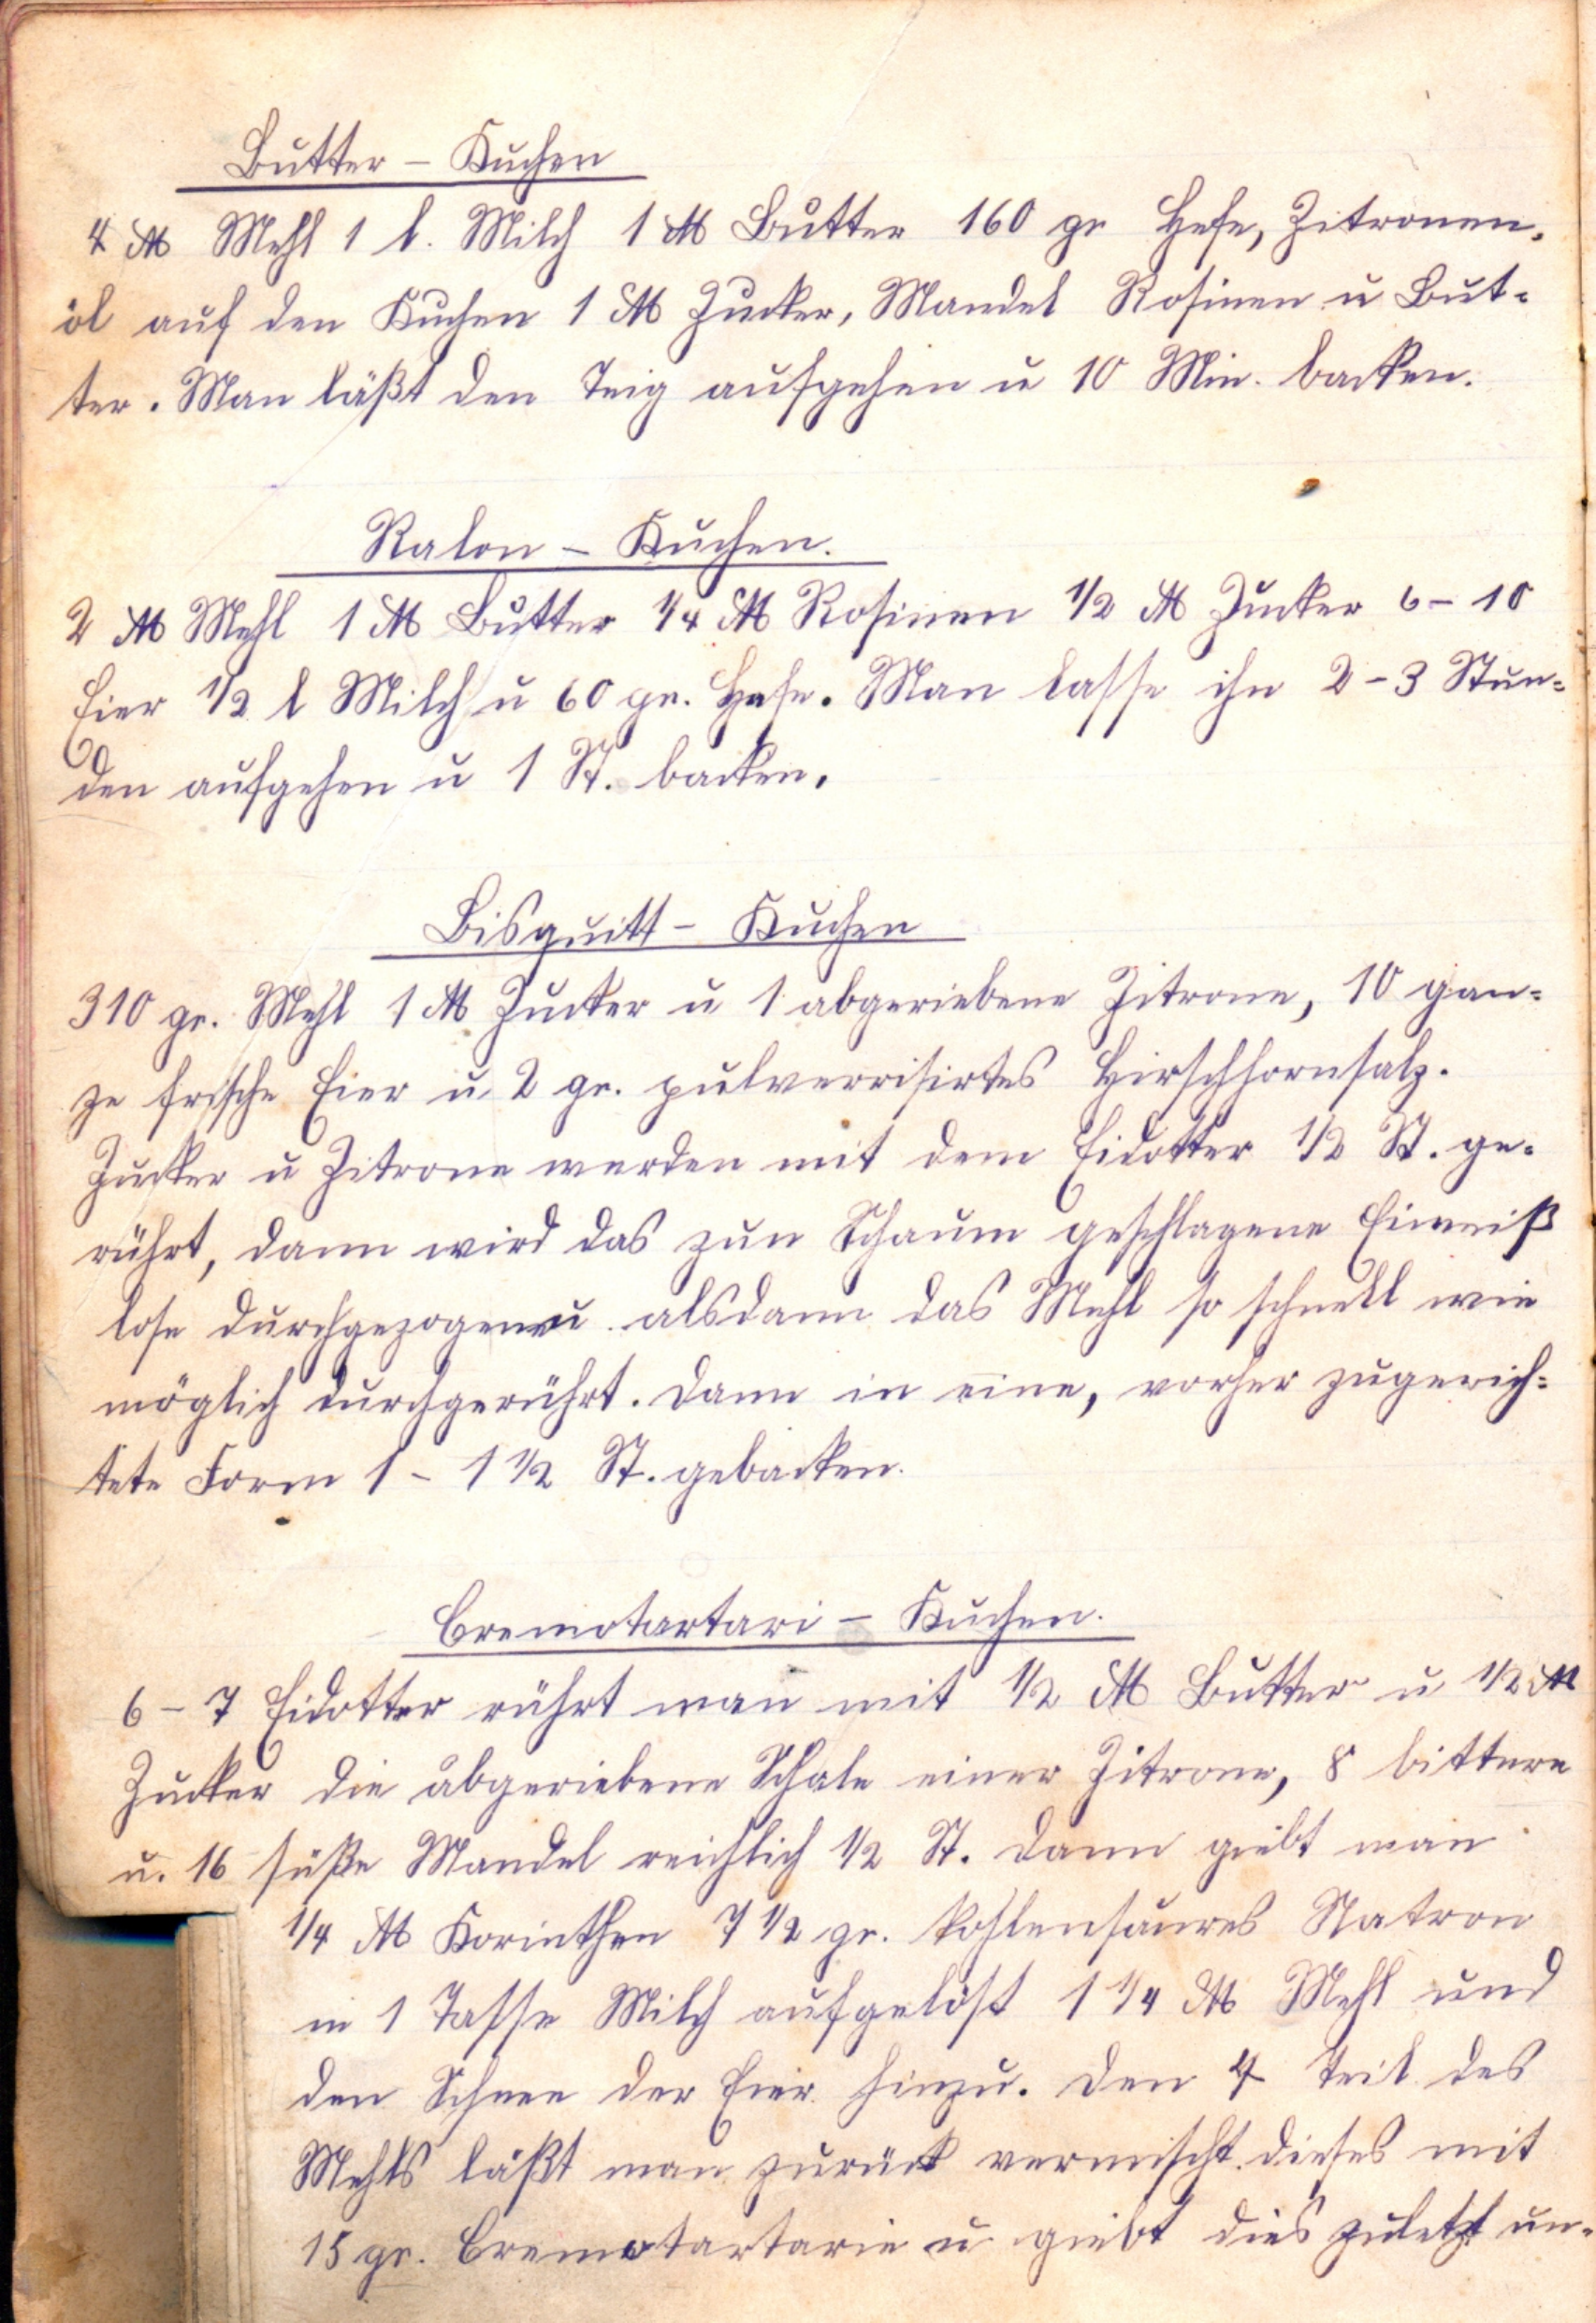 Butter - Kuchen
4 ℔ Mehl 1 l. Milch 1 ℔ Butter 160 gr Hefe, Zitronen-
öl auf den Kuchen 1 ℔ Zucker, Mandel Rosinen u But-
ter. Man läßt den Teig aufgehen u 10 Min. backen.
Ralon - Kuchen.
2 ℔ Mehl 1 ℔ Butter 1/4 ℔ Rosinen 1/2 ℔ Zucker 6 - 10
Eier 1/2 l Milch u 60 gr. Hefe. Man lasse ihn 2 - 3 Stun=
den aufgehen u 1 St. backen.
Bisquitt - Kuchen
310 gr. Mehl 1 ℔ Zucker u 1 abgeriebene Zitrone, 10 gan=
ze frische Eier u 2 gr. pulverrisirtes Hirschhornsalz.
Zucker u Zitrone werden mit dem Eidotter 1/2 St. ge-
rührt, dann wird das zun Schaum geschlagene Eiweiß
lose durchgezogen u alsdann das Mehl so schnell wie
möglich durchgerührt. Dann in eine, vorher zugerich=
tete Form 1 - 1 1/2 St. gebacken.
Cremotartari - Kuchen.
6 - 7 Eidotter rührt man mit 1/2 ℔ Butter u 1/2 ℔
Zucker die abgeriebene Schale einer Zitrone, 8 bittere
u. 16 süße Mandel reichlich 1/2 St. Dann giebt man
1/4 ℔ Korinthen 7 1/2 gr. kohlensaures Natron
in 1 Tasse Milch aufgelöst 1 1/4 ℔ Mehl und
den Schnee der Eier hinzu. Den 4 Teil des
Mehls läßt man zurück vermischt dieses mit
15 gr. Cremotartarie u giebt dies zuletzt un-